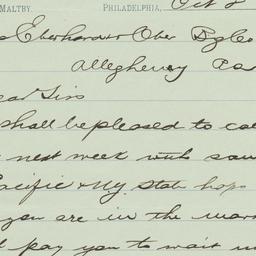 MALTBY. PHILADELPHIA, Oct 2
Eberhardt & Ober Bg Co
Allegheny Pa
ear Sirs
shall be pleased to cal
next week with sam
acific & N.Y. State hops
you are in the mar
l pay you to wait